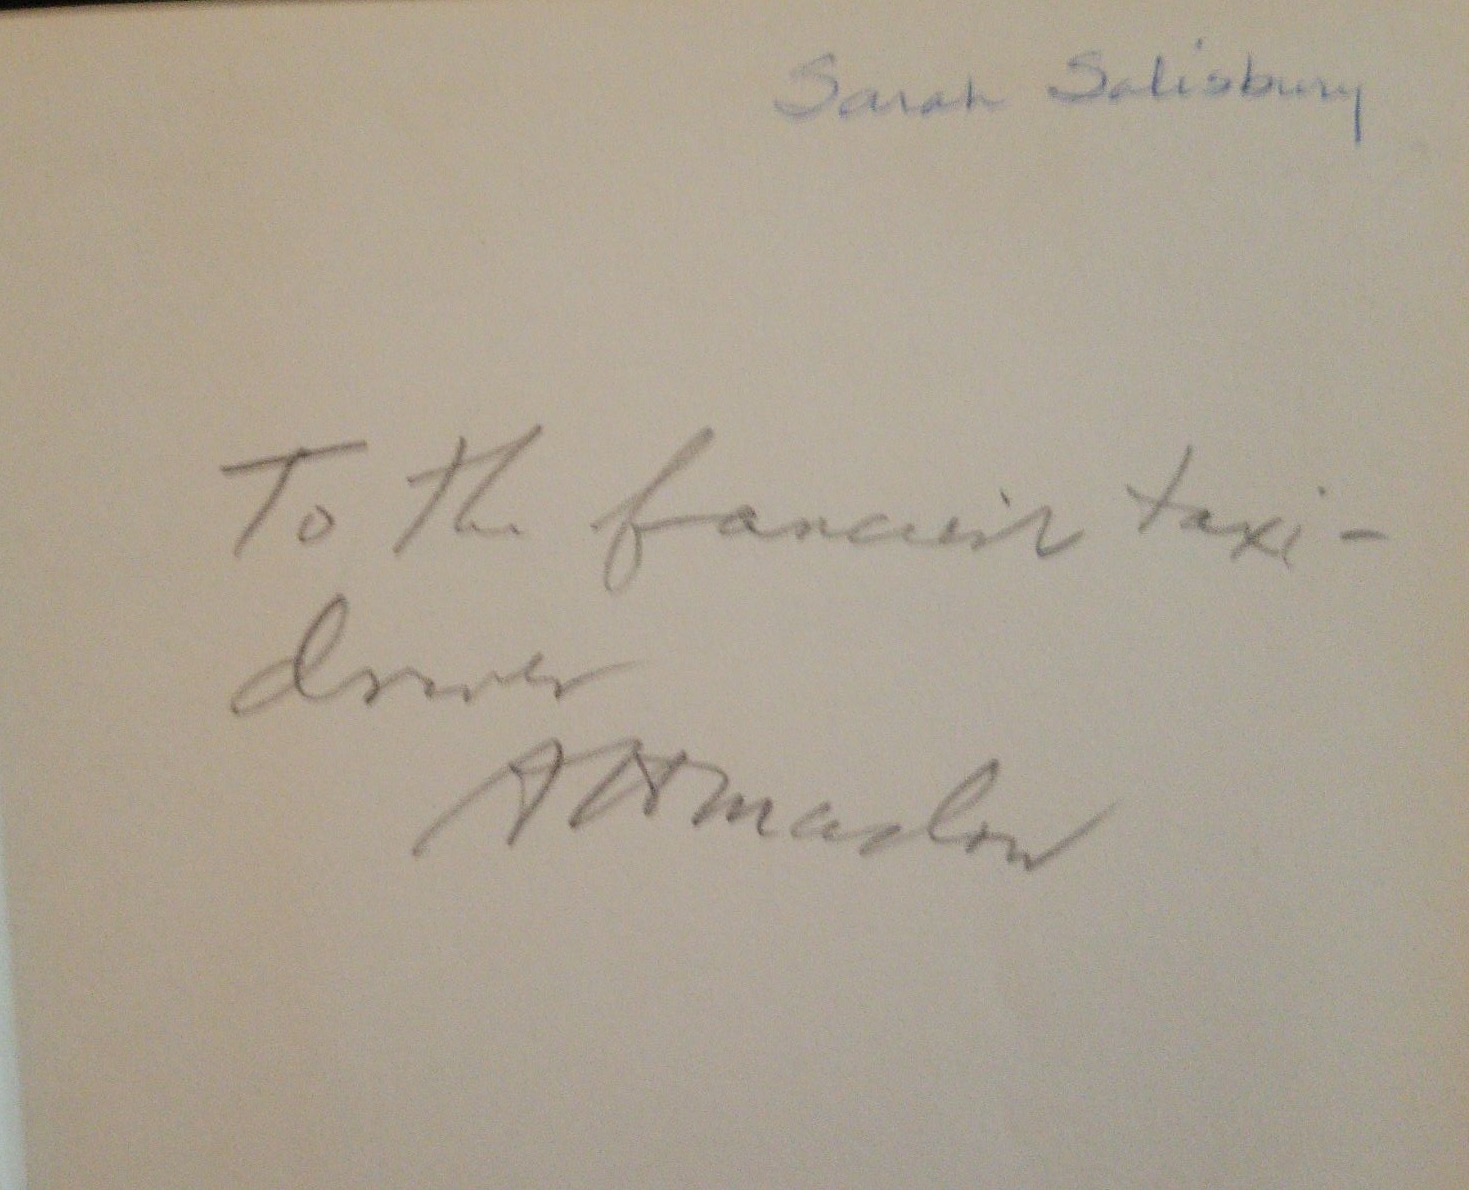 Sarah Salisbury
To the fanciest taxi-
driver
A H Maslow